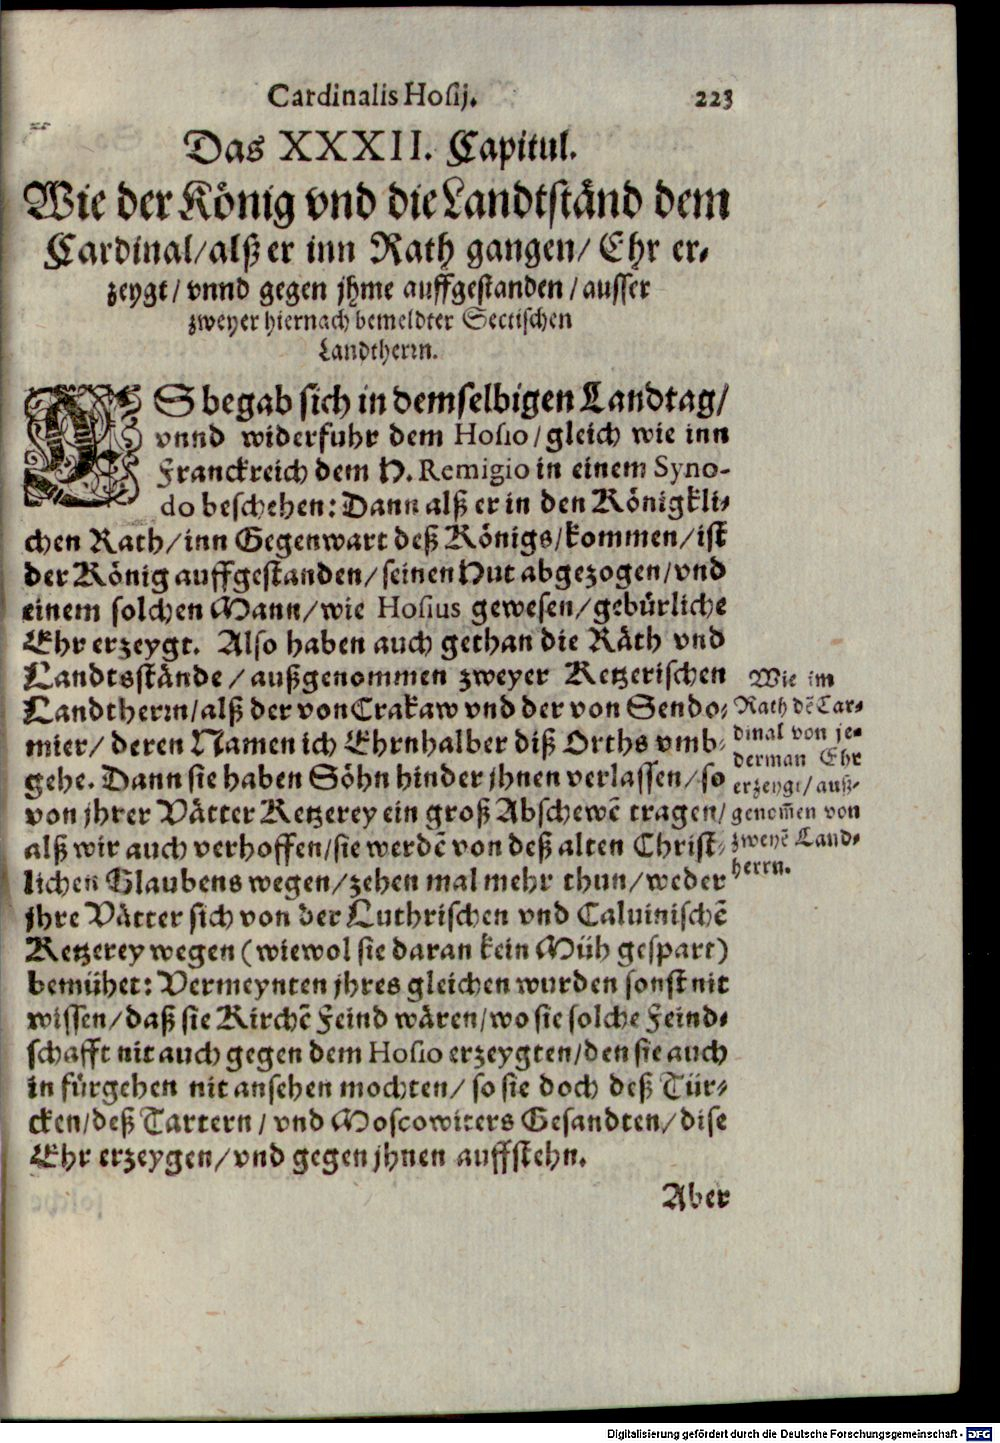 Cardinalis Hosij. 223
Das XXXII. Capitul.
Wie der König vnd die Landtständ dem
Cardinal/alß er inn Rath gangen/ Ehr er-
zeygt/ vnnd gegen jhme auffgestanden/ausser
zweyer hiernach bemeldter Sectischen
Landtherrn.
ES begab sich in demselbigen Landtag/
vnnd widerfuhr dem Hosio/gleich wie inn
Franckreich dem H. Remigio in einem Syno-
do beschehen: Dann alß er in den Königkli-
chen Rath/inn Gegenwart deß Königs/kommen/ist
der König auffgestanden/seinen Hut abgezogen/vnd
einem solchen Mann/wie Hosius gewesen/gebürliche
Ehr erzeygt. Also haben auch gethan die Räth vnd
Landtsstände/außgenommen zweyer Ketzerischen
Landtherrn/alß der von Crakaw vnd der von Sendo-
mier/ deren Namen ich Ehrnhalber diß Orths vmb-
gehe. Dann sie haben Söhn hinder jhnen verlassen/so
von jhrer Vätter Ketzerey ein groß Abschewē tragen/
alß wir auch verhoffen/sie werdē von deß alten Christ-
lichen Glaubens wegen/zehen mal mehr thun/weder
jhre Vätter sich von der Luthrischen vnd Caluinischē
Ketzerey wegen (wiewol sie daran kein Müh gespart)
bemühet: Vermeynten jhres gleichen wurden sonst nit
wissen/daß sie Kirchē Feind wären/wo sie solche Feind-
schafft nit auch gegen dem Hosio erzeygten/den sie auch
in fürgehen nit ansehen mochten/ so sie doch deß Tür-
cken/deß Tartern/ vnd Moscowiters Gesandten/dise
Ehr erzeygen/vnd gegen jhnen auffstehn.
Aber
Wie im
Rath dē Car-
dinal von je-
derman Ehr
erzeygt/auß-
genom̃en von
zweyē Land-
herrn.
Digitalisierung gefördert durch die Deutsche Forschungsgemeinschaft - DFG